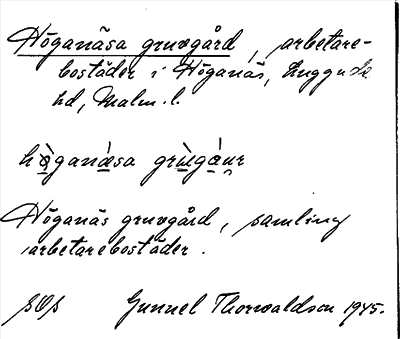 Höganäsa gruvgård, arbetare-
bostäder i Höganäs, Luggude
hd, Malm. l.
hò̱ganá̱sa grù̱gá̱u̯r
Höganäs gruvgård, samling
arbetarebostäder.
Gunnel Thorwaldson 1945.